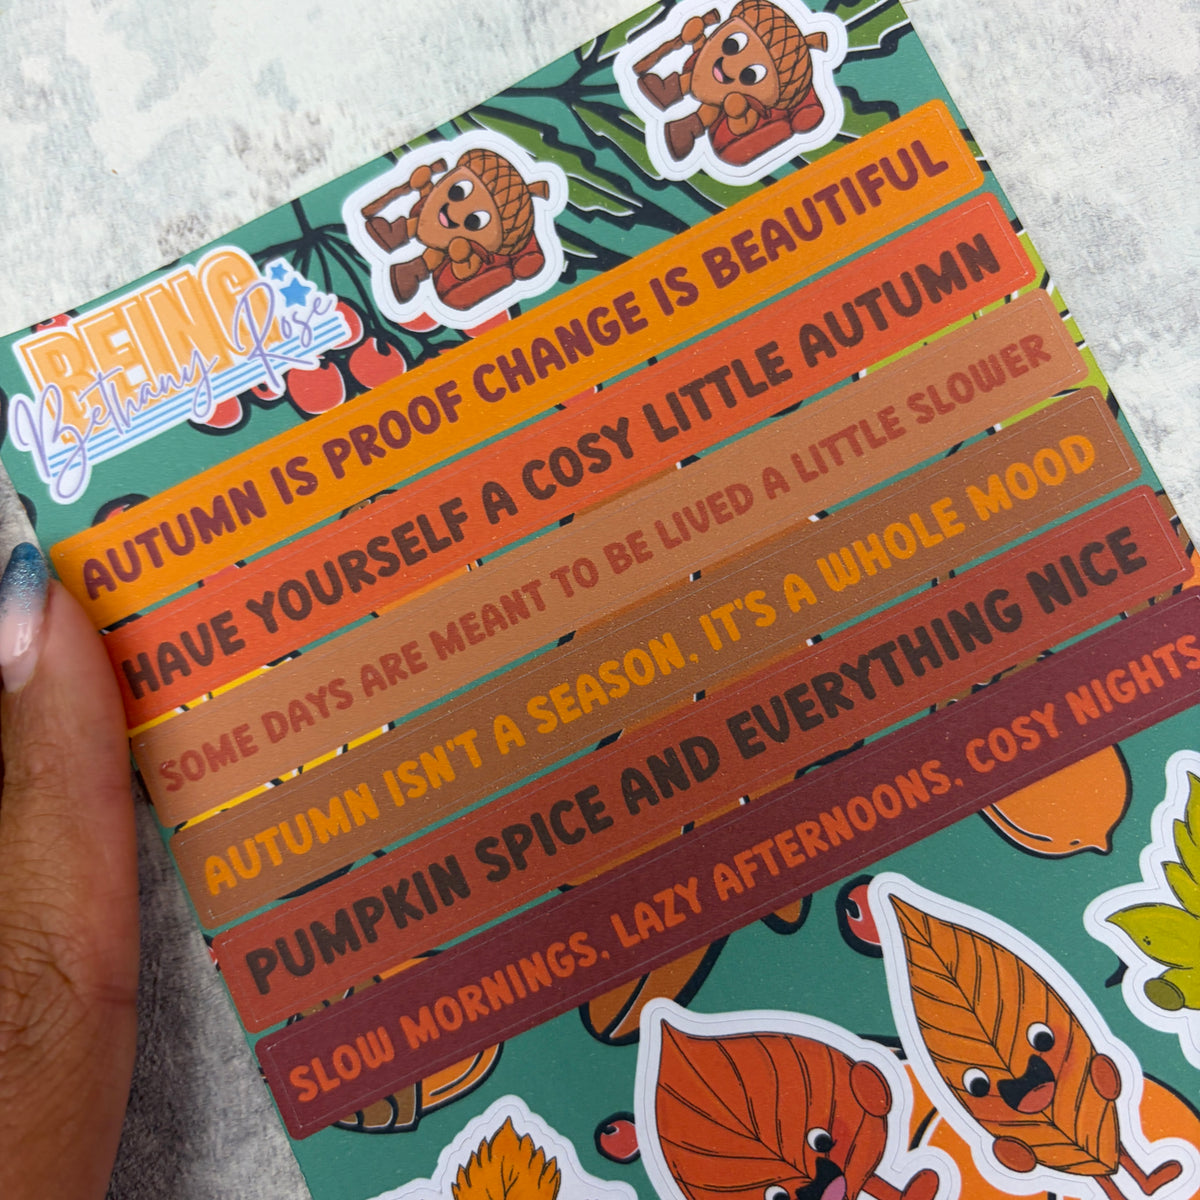 BEING
Bethany Rose
AUTUMN IS PROOF CHANGE IS BEAUTIFUL
HAVE YOURSELF A COSY LITTLE AUTUMN
SOME DAYS ARE MEANT TO BE LIVED A LITTLE SLOWER
AUTUMN ISN'T A SEASON, IT'S A WHOLE MOOD
PUMPKIN SPICE AND EVERYTHING NICE
SLOW MORNINGS, LAZY AFTERNOONS, COSY NIGHTS